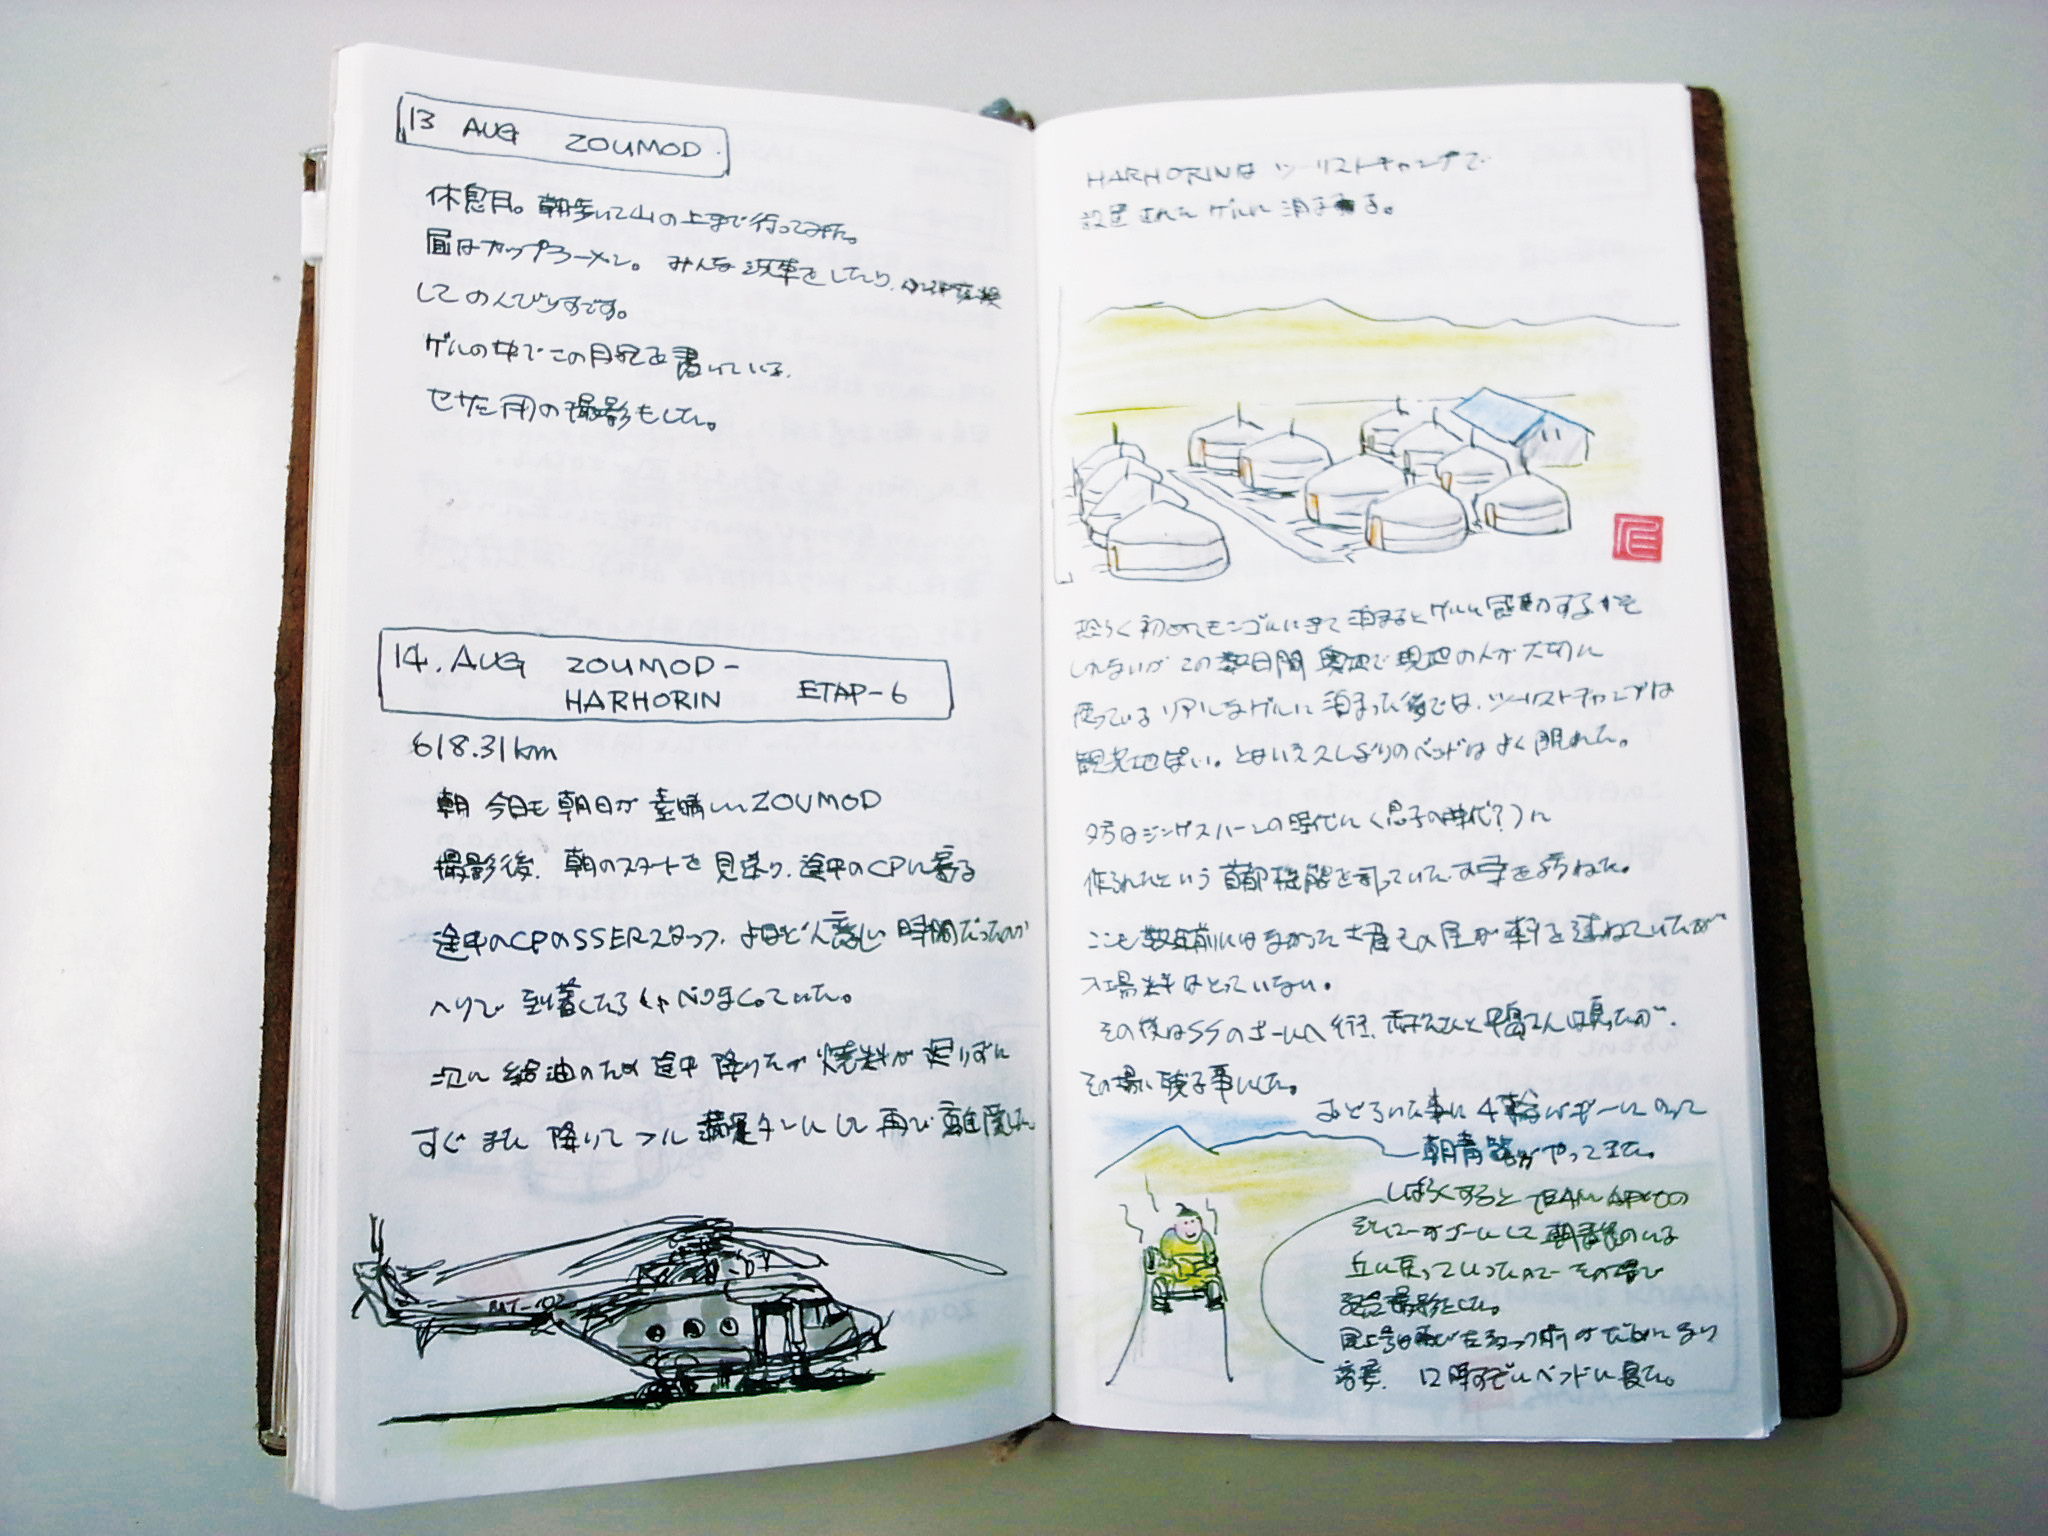 13 AUG ZOUMOD.
休息日。朝歩いて山の上まで行ってみた。
昼はカップラーメン。みんな洗車をしたり、
してのんびりすです。
ゲルの中でこの日記を書いている。
用の撮影もした。
14. AUG ZOUMOD-
HARHORIN ETAP-6
618.31km
朝 今日も朝日が素晴しいZOUMOD
撮影後、朝のスタートを見送り、途中のCPに寄る
途中のCPのSSERスタッフ、よほど人恋しい時間だったのか
ヘリで到着したらしゃべりまくっていた。
次に給油のため途中降りたが燃料が足りずに
すぐまた降りてフル満タンにして再び離陸した
MI-102
HARHORINは ツーリストキャンプで
設置されたゲルに泊まる。
恐らく初めてモンゴルにきて泊まるとゲルに感動するかも
しれないがこの数日間奥地で現地の人が大切に
使っているリアルなゲルに泊まった後では、ツーリストキャンプは
観光地ぽい。とはいえ久しぶりのベッドはよく眠れた。
夕方はジンギスハーンの時代に(息子の時代?)に
作られたという首都機能を司っていたお寺を訪ねた。
ここも数年前にはなかったお土産屋が軒を連ねていたが
入場料はとっていない。
その後はSSのゴールへ行き、さんとさんは戻ったが、
その場に残る事にした。
おどろいた事に4輪バギーにのって
朝青龍がやってきた。
しばらくすると TEAM の
がゴールして朝青龍のいる
丘に戻っていったのでその場で
記念撮影をした。
12時すぎにベッドに寝た。